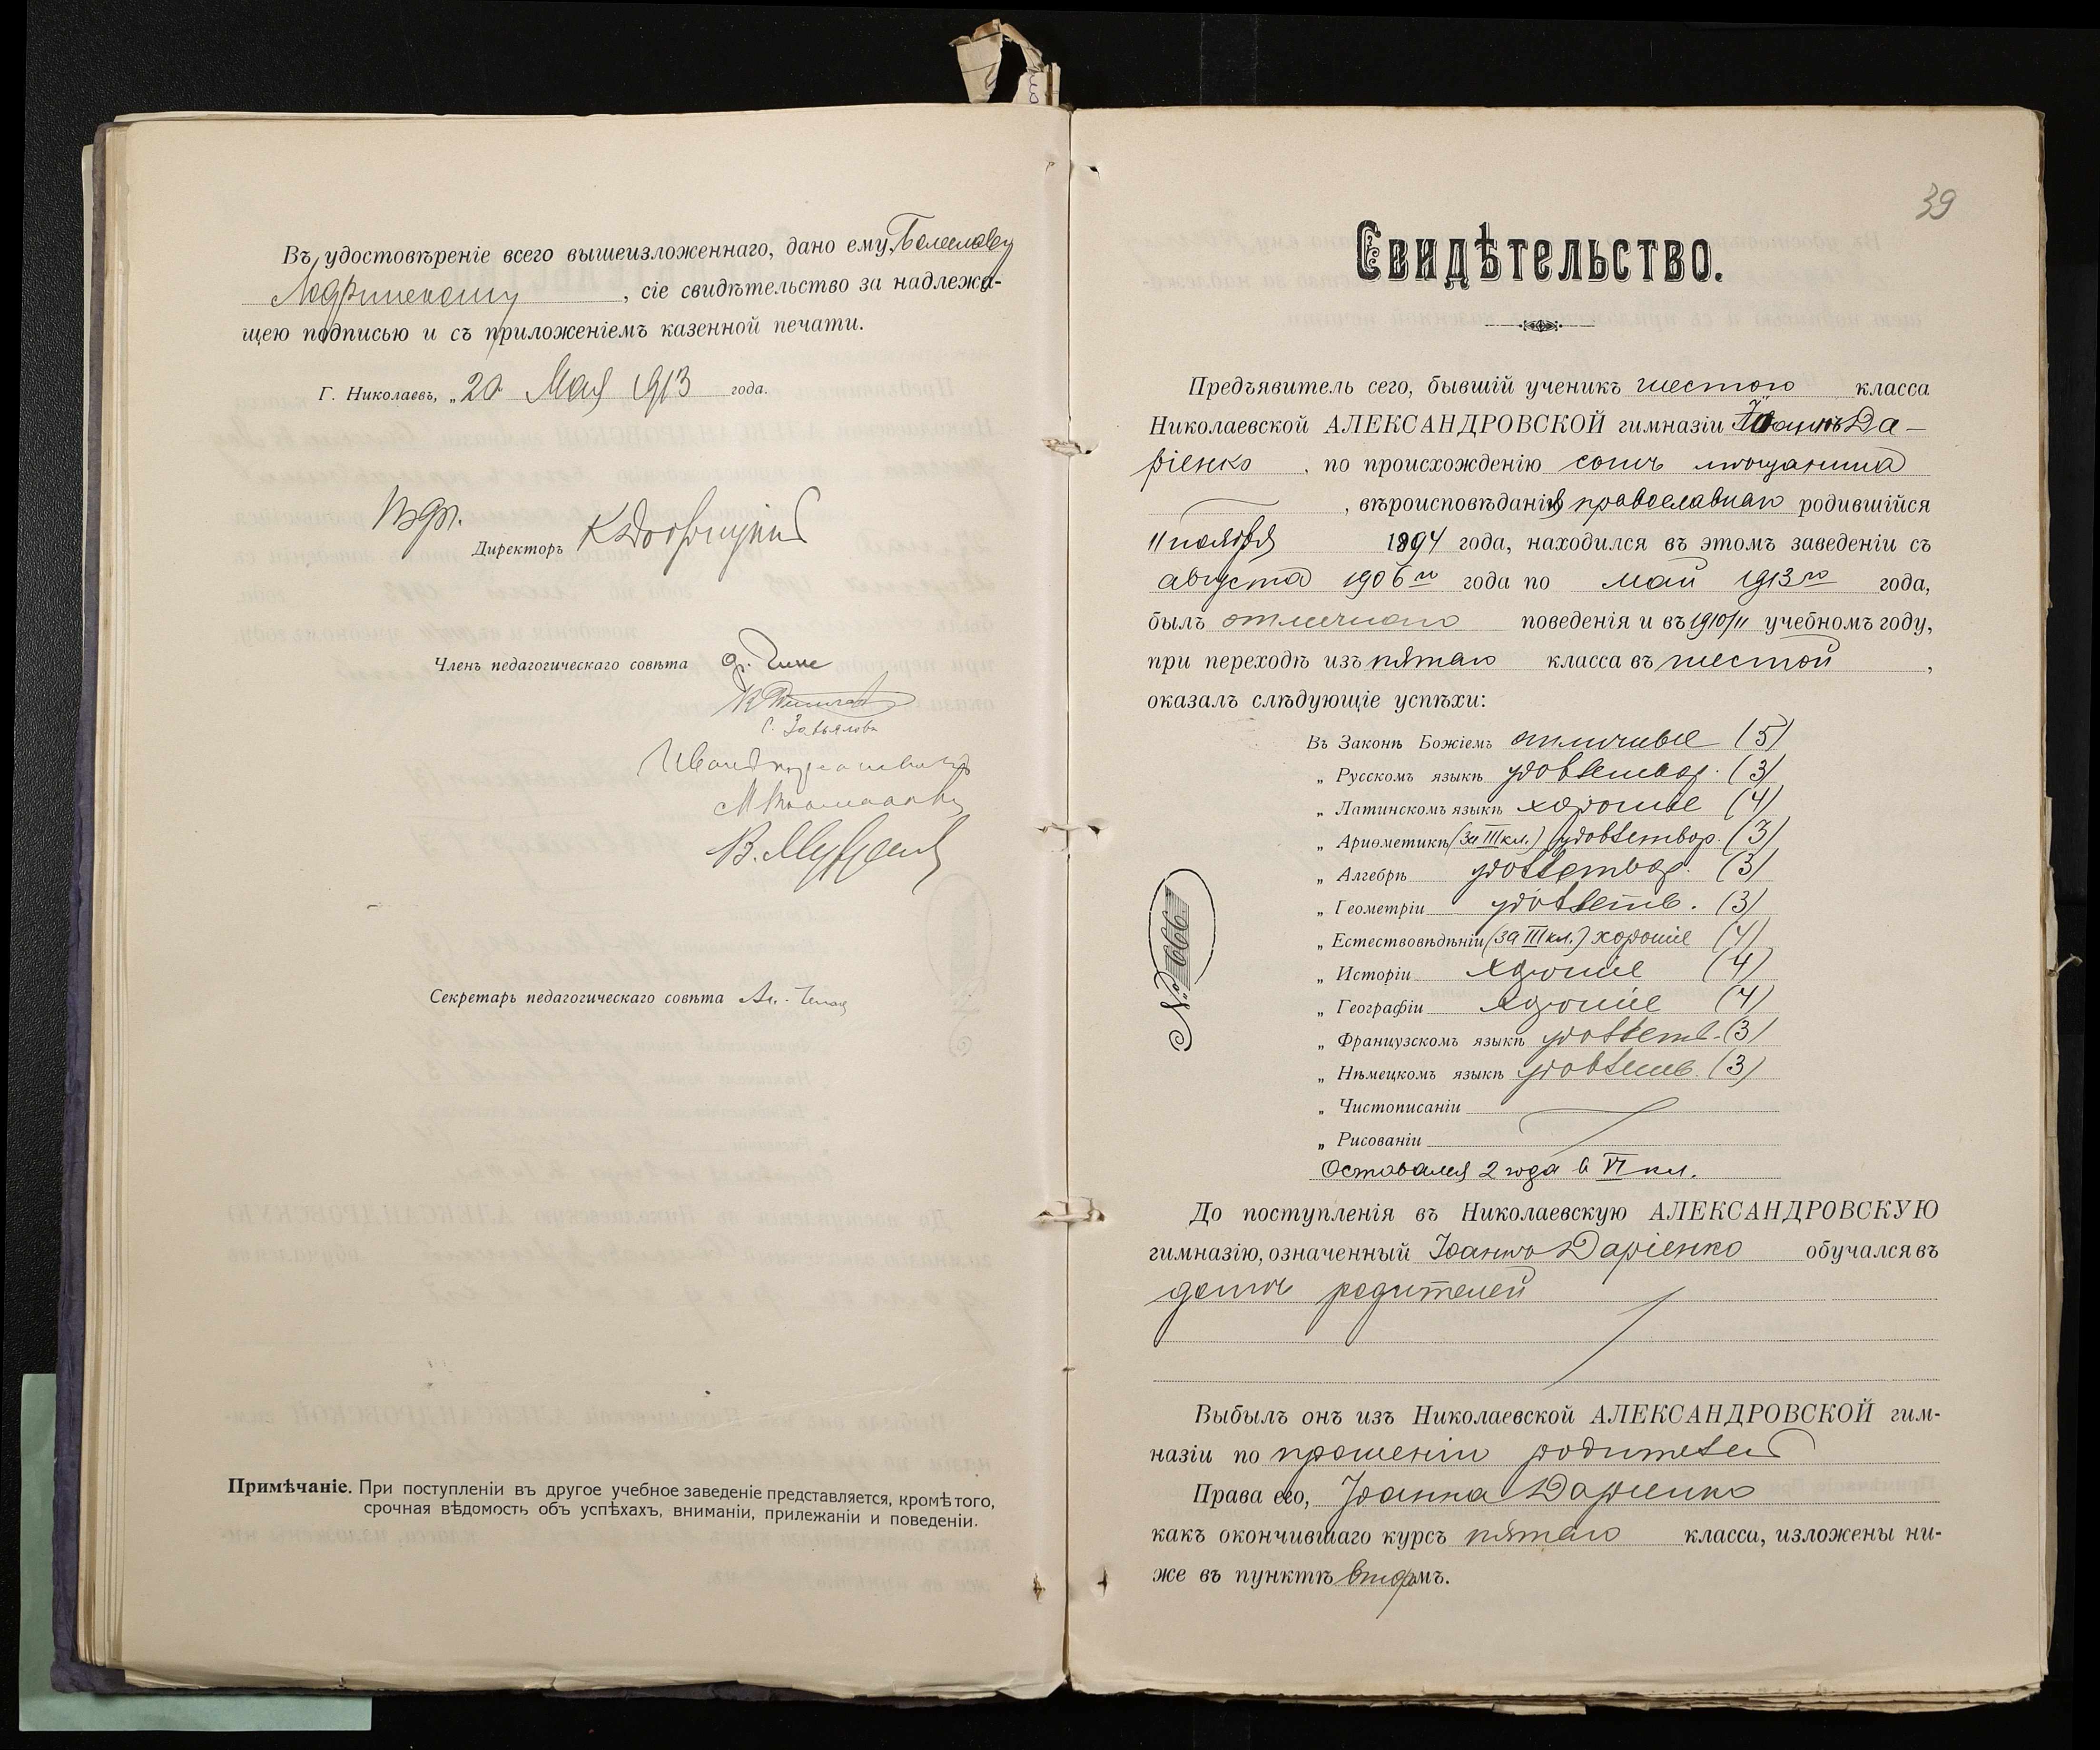 Въ удостовѣреніе всего вышеизложеннаго, дано ему, Болеславу
, сіе свидѣтельство за надлежа-
щею подписью и съ приложеніемъ казенной печати.
Г. Николаевъ, „20 Мая 1913 года.
Директоръ
Членъ педагогическаго совѣта
С. Завьяловъ
Секретарь педагогическаго совѣта
Примѣчаніе. При поступленіи въ другое учебное заведеніе представляется, кромѣ того,
срочная вѣдомость объ успѣхахъ, вниманіи, прилежаніи и поведеніи.
39
Свидѣтельство.
Предъявитель сего, бывшій ученикъ шестого класса
Николаевской АЛЕКСАНДРОВСКОЙ гимназіи Іоаннъ Да-
ріенко, по происхожденію сынъ мѣщанина
, вѣроисповѣданія православнаго родившійся
11 ноября 1894 года, находился въ этомъ заведеніи съ
августа 1906 го года по май 1913 го года,
былъ отличнаго поведенія и въ 1910/11 учебномъ году,
при переходѣ изъ пятаго класса въ шестой,
оказалъ слѣдующіе успѣхи:
Въ Законѣ Божіемъ отличные (5)
„ Русскомъ языкѣ удовлетвор. (3)
„ Латинскомъ языкѣ хорошіе (4)
„ Ариѳметикѣ (за III кл.) удовлетвор. (3)
„ Алгебрѣ удовлетвор. (3)
„ Геометріи удовлетв. (3)
„ Естествовѣдѣніи (за III кл.) хорошіе (4)
„ Исторіи хорошіе (4)
„ Географіи хорошіе (4)
„ Французскомъ языкѣ удовлетв. (3)
„ Нѣмецкомъ языкѣ удовлетв. (3)
„ Чистописаніи
„ Рисованіи
Оставался 2 года в VI кл.
№ 666
До поступленія въ Николаевскую АЛЕКСАНДРОВСКУЮ
гимназію, означенный Іоаннъ Даріенко обучался въ
домѣ родителей
Выбылъ онъ изъ Николаевской АЛЕКСАНДРОВСКОЙ гим-
назіи по прошенію родителей
Права его, Іоанна Даріенко
какъ окончившаго курсъ пятаго класса, изложены ни-
же въ пунктѣ второмъ.